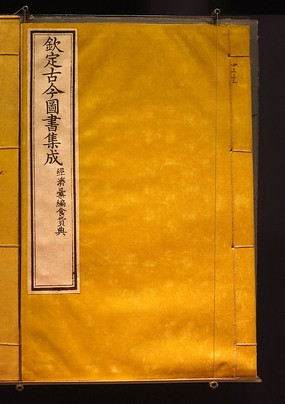 欽定古今圖書集成
經濟彙編食貨典